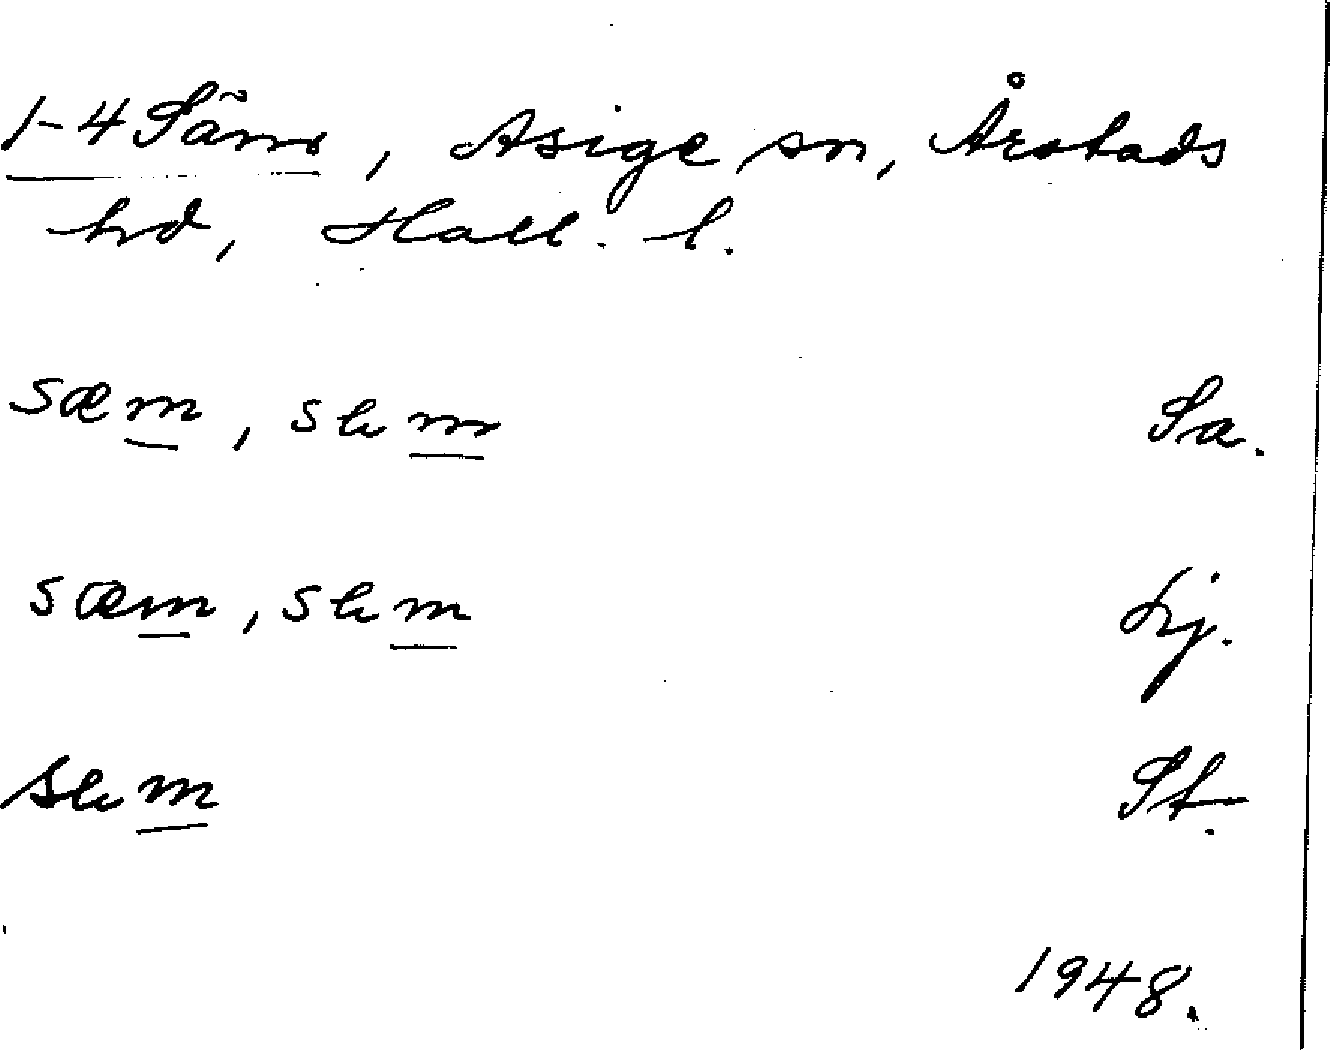 1-4 Säm, Asige sn, Årstads
hd, Hall. l.
sæm, sem Sa.
sæm, sem Lj.
sem St.
1948.